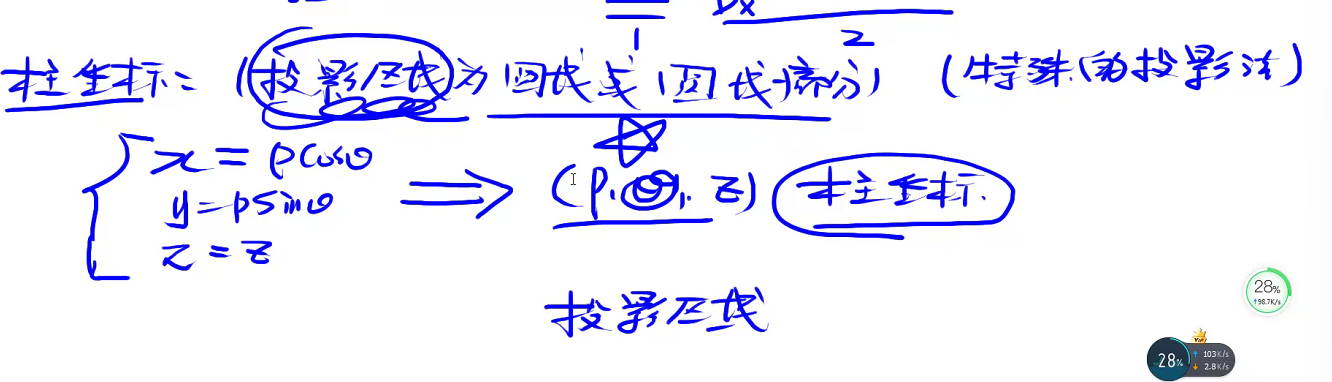 Dx
1 2
柱坐标：（投影区域为圆域或圆域部分）（特殊的投影法）
x = ρcosθ
y = ρsinθ ⟹ (ρ, θ, z) 柱坐标.
z = z
投影区域
28%
↑98.7K/s
VIP
28% ↑ 103K/s
↓ 2.8K/s